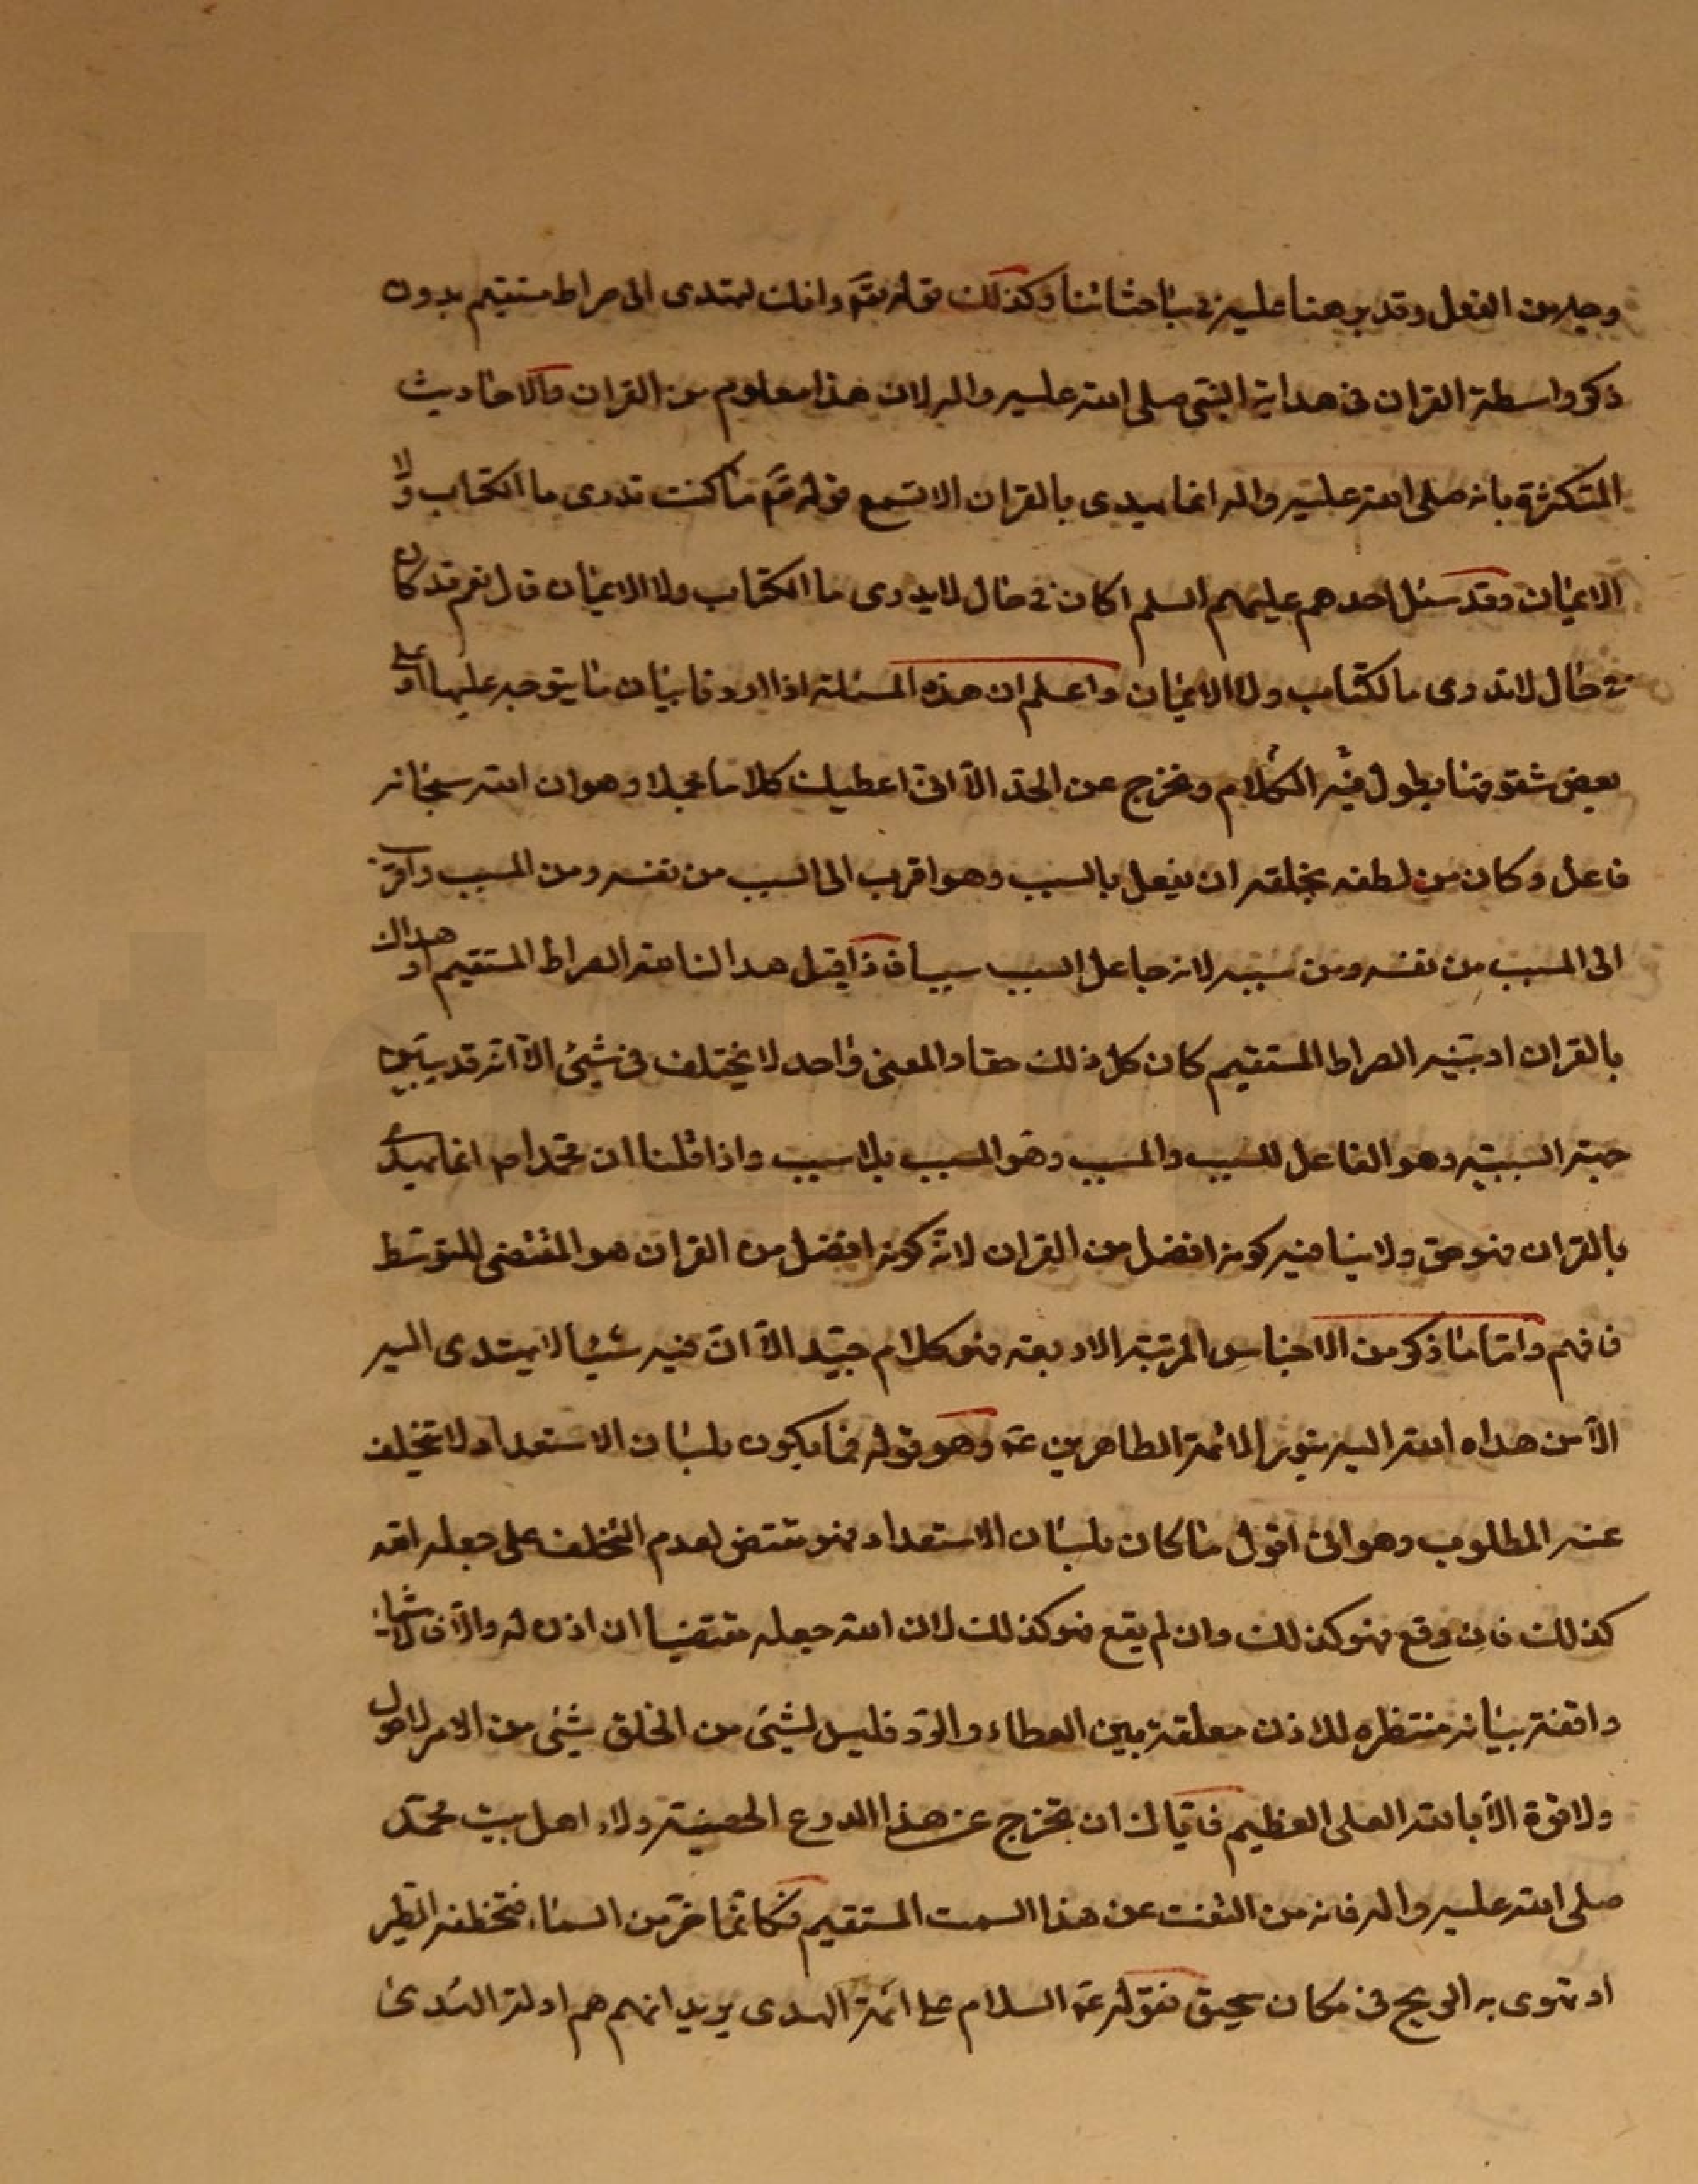 وجه من الفعل وقد برهنا عليه في مباحثاتنا وكذلك قوله تعم وانك لتهتدى الى صراط مستقيم بدون
ذكر واسطة القران فى هداية النبى صلى الله عليه واله لان هذا معلوم من القران والاحاديث
المتكثرة بانه صلى الله عليه واله انما يهدى بالقران الا تسمع قوله تعم ما كنت تدرى ما الكتاب ولا
الايمان وقد سئل احدهم عليهم السلم اكان في حال لا يدرى ما الكتاب ولا الايمان قال نعم قد كان
في حال لا يدرى ما الكتاب ولا الايمان واعلم ان هذه المسئلة اذا اردنا بيان ما يتوجه عليها او على
بعض شقوقها يطول فيه الكلام ونخرج عن الحد الا انى اعطيك كلاما مجملا وهو ان الله سبحانه
فاعل وكان من لطفه بخلقه ان يفعل بالسبب وهو اقرب الى السبب من نفسه ومن المسبب واقرب
الى المسبب من نفسه ومن سببه لانه جاعل السبب سببا فاذا قيل هدانا الله الصراط المستقيم او هداك
بالقران او بنبيه الصراط المستقيم كان كل ذلك حقا والمعنى واحد لا يختلف فى شيئ الا انه قد يبين
جهة السببية وهو الفاعل للسبب والمسبب وهو المسبب بلا سبب واذا قلنا ان محمدا ص انما يهدى
بالقران فهو حق ولا ينافيه كونه افضل من القران لانه كونه افضل من القران هو المقتضى للتوسط
فافهم واما ما ذكر من الاجناس المرتبة الاربعة فهو كلام جيد الا ان فيه شيئا لا يهتدى اليه
الا من هداه الله اليه بنور الائمة الطاهرين عم وهو قوله فما يكون بلسان الاستعداد لا يتخلف
عنه المطلوب وهو انى اقول ما كان بلسان الاستعداد فهو مقتض لعدم التخلف على جعله الله
كذلك فان وقع فهو كذلك وان لم يقع فهو كذلك لان الله جعله مقتضيا ان اذن له والا فالاشياء
واقفة ببابه منتظره للاذن معلقة بين العطاء والرد فليس لشيئ من الخلق شيئ من الامر لا حول
ولا قوة الا بالله العلى العظيم فاياك ان تخرج عن هذا الدرع الحصينة ولاء اهل بيت محمد
صلى الله عليه واله فانه من التفت عن هذا السمت المستقيم فكانما خر من السماء فتخطفه الطير
او تهوى به الريح فى مكان سحيق فقوله عم السلام على ائمة الهدى يريد انهم هم ادلة الهدى